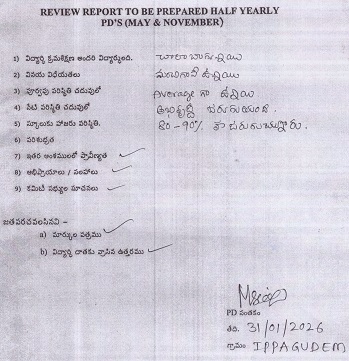 REVIEW REPORT TO BE PREPARED HALF YEARLY
PD'S (MAY & NOVEMBER)
1) విద్యార్థి క్రమశిక్షణ అందరి విద్యార్థులది. చాలా బాగున్నాయి
2) వినయ విధేయతలు మంచిగానే ఉన్నాయి
3) పూర్వపు పరిస్థితి చదువులో Average గా ఉన్నాయి
4) నేటి పరిస్థితి చదువులో అభివృద్ధి జరుగుతుంది.
5) స్కూలుకు హాజరు పరిస్థితి. 80-90% హాజరుగుచున్నారు.
6) పరిశుభ్రత
7) ఇతర అంశములలో ప్రావీణ్యత
8) అభిప్రాయాలు / సలహాలు
9) కమిటీ సభ్యుల సూచనలు
జతపరచవలసినవి –
a) మార్కుల పత్రము
b) విద్యార్థి దాతకు వ్రాసిన ఉత్తరము
PD సంతకం
తేది. 31/01/2026
గ్రామం: IPPAGUDEM